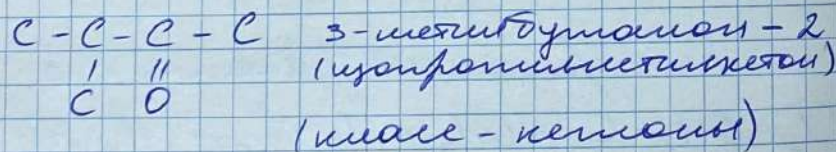 C - C - C - C 3-метилбутанон-2
| || (изопропилметилкетон)
C O
(класс - кетоны)